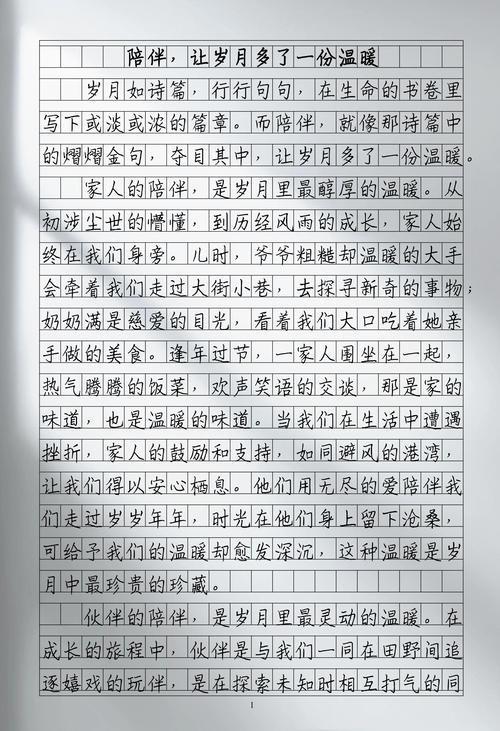 陪伴，让岁月多了一份温暖
岁月如诗篇，行行句句，在生命的书卷里
写下或淡或浓的篇章。而陪伴，就像那诗篇中
的熠熠金句，夺目其中，让岁月多了一份温暖。
家人的陪伴，是岁月里最醇厚的温暖。从
初涉尘世的懵懂，到历经风雨的成长，家人始
终在我们身旁。儿时，爷爷粗糙却温暖的大手
会牵着我们走过大街小巷，去探寻新奇的事物；
奶奶满是慈爱的目光，看着我们大口吃着她亲
手做的美食。逢年过节，一家人围坐在一起，
热气腾腾的饭菜，欢声笑语的交谈，那是家的
味道，也是温暖的味道。当我们在生活中遭遇
挫折，家人的鼓励和支持，如同避风的港湾，
让我们得以安心栖息。他们用无尽的爱陪伴我
们走过岁岁年年，时光在他们身上留下沧桑，
可给予我们的温暖却愈发深沉，这种温暖是岁
月中最珍贵的珍藏。
伙伴的陪伴，是岁月里最灵动的温暖。在
成长的旅程中，伙伴是与我们一同在田野间追
逐嬉戏的玩伴，是在探索未知时相互打气的同
1